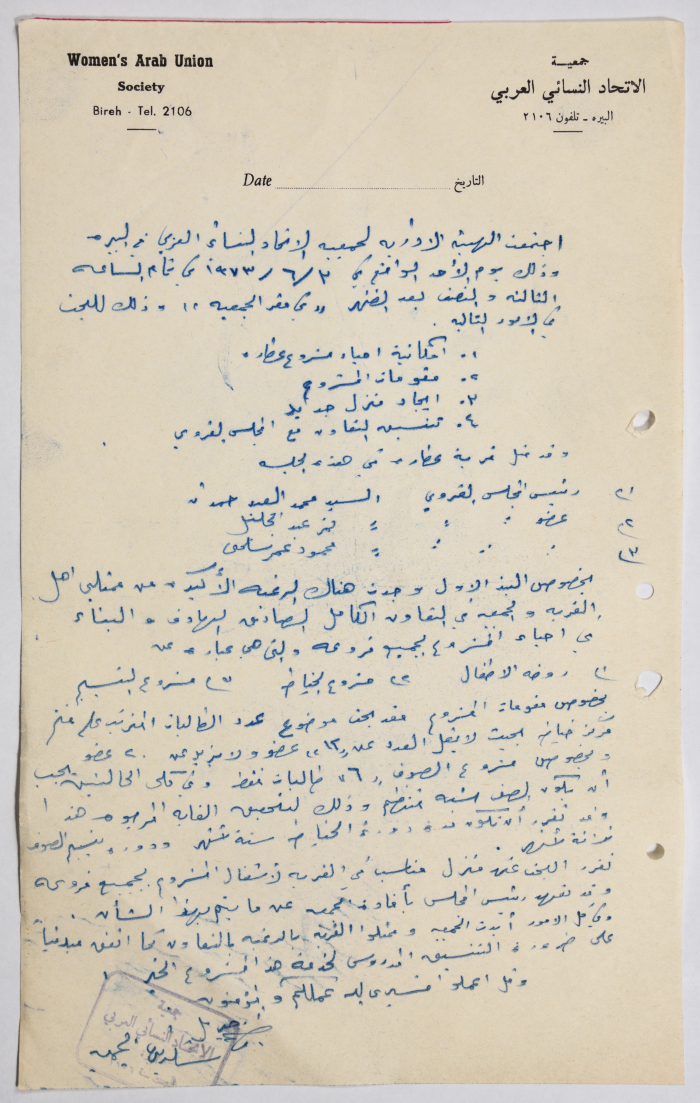 Women's Arab Union
Society
Bireh - Tel. 2106
جمعيـة
الاتحاد النسائي العربي
البيره - تلفون ٢١٠٦
Date التاريخ
اجتمعت الهيئة الادارية لجمعية الاتحاد النسائي العربي في البيره
وذلك يوم الأحد الواقع في ٣/٦/١٩٧٣ في تمام الساعه
الثالثه والنصف بعد الظهر في مقر الجمعيه وذلك للبحث
في الامور التاليه .
١. امكانية احياء مشروع عطاره
٢. مقومات المشروع
٣. ايجاد منزل جديد
٤. تنسيق التعاون مع المجلس القروي
وقد مثل قرية عطاره في هذه الجلسه
١) رئيس المجلس القروي السيد محمد العبد حمدان
٢) عضو " " " نمر عبد الجليل
٣) " " " " محمود عمر
بخصوص البند الاول وجدت هناك الرغبه الأكيده من ممثلي اهل
القريه والجمعيه في التعاون الكامل الصادق الهادف والبناء
في احياء المشروع بجميع فروعه والتي هي عباره عن
١) روضة الاطفال ٢) مشروع الخياطه ٣) مشروع النسيج
بخصوص مقومات المشروع فقد بحث موضوع عدد الطالبات المترتب على فتح
مركز خياطه بحيث لا يقل العدد عن "١٢" عضو ولا يزيد عن ٢٠ عضو
وبخصوص مشروع الصوف "٦" طالبات فقط وفي كلى الحالتين يجب
أن يكون الصف منتظم وذلك لتحقيق الغايه المرجوه هذا
وقد تقرر أن تكون مدة دورة الخياطه ستة اشهر ودورة نسيج الصوف
ثلاثة اشهر .
تقرر البحث عن منزل مناسب في القريه لأشغال المشروع بجميع فروعه
وقد تعهد رئيس المجلس بأفادة الجمعيه عن ما يتم بهذا الشأن .
وفي كل الامور أبدت الجمعيه وممثلوا القريه الرغبه بالتعاون كما اتفق مبدئياً
على ضرورة التنسيق المدروس لخدمة هذا المشروع الخير
وقل اعملوا فسيرى الله عملكم والمؤمنون
جمعية
الاتحاد النسائي العربي